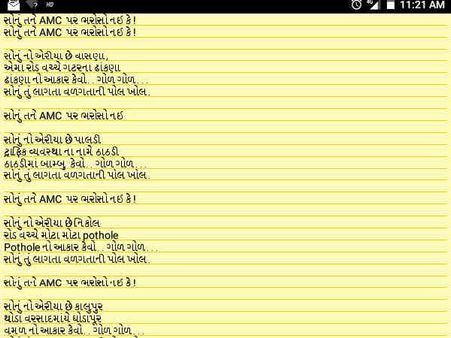 11:21 AM
સોનું તને AMC પર ભરોસો નઇ કે!
સોનું તને AMC પર ભરોસો નઇ કે!
સોનું નો એરીયા છે વાસણા,
એમાં રોડ વચ્ચે ગટરના ઢાંકણા
ઢાંકણા નો આકાર કેવો.. ગોળ ગોળ...
સોનું તું લાગતા વળગતાની પોલ ખોલ.
સોનું તને AMC પર ભરોસો નઇ
સોનું નો એરીયા છે પાલડી
ટ્રાફિક વ્યવસ્થા ના નામે ઠાઠડી
ઠાઠડીમાં બામ્બુ કેવો.. ગોળ ગોળ...
સોનું તું લાગતા વળગતાની પોલ ખોલ.
સોનું તને AMC પર ભરોસો નઇ કે!
સોનું નો એરીયા છે નિકોલ
રોડ વચ્ચે મોટા મોટા pothole
Pothole નો આકાર કેવો.. ગોળ ગોળ...
સોનું તું લાગતા વળગતાની પોલ ખોલ.
સોનું તને AMC પર ભરોસો નઇ કે!
સોનું નો એરીયા છે કાલુપુર
થોડા વરસાદમાંયે ઘોડાપૂર
વમળ નો આકાર કેવો.. ગોળ ગોળ...